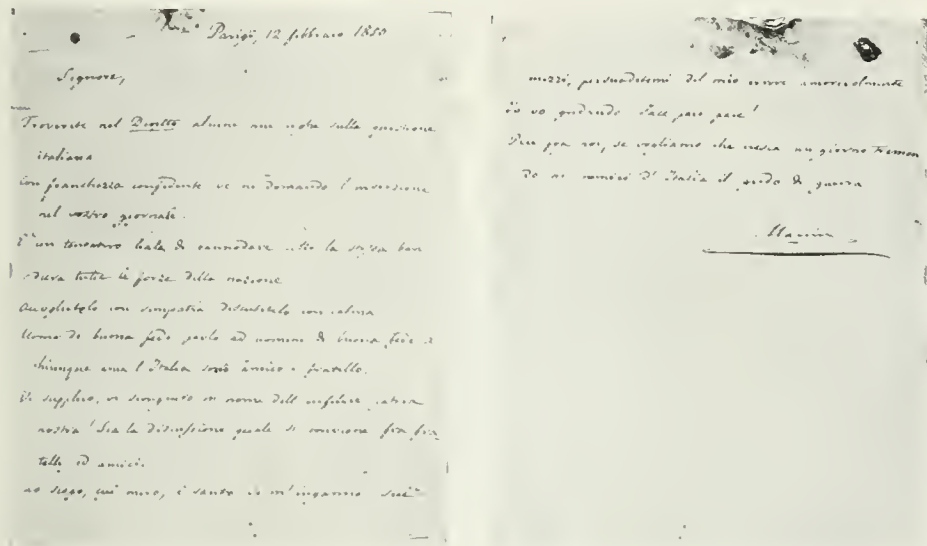 Parigi, 12 febbraio 1855
Signore,
Troverete nel Diritto alcune mie note sulla quistione
italiana
Con franchezza confidente ve ne domando l'inserzione
nel vostro giornale.
È un tentativo leale di rannodare sotto la stessa ban
diera tutte le forze della nazione
Accoglietelo con simpatia discutetelo con calma
Uomo di buona fede parlo ad uomini di buona fede e
chiunque ama l'Italia sono amico e fratello.
Vi supplico, vi scongiuro in nome dell'infelice patria
nostra! Sia la discussione quale si conviene fra fra
telli ed amici.
Lo scopo, cui miro, è santo se m'inganno sui
mezzi, persuadetemi del mio errore amorevolmente
Io vo gridando pace pace pace!
Pace fra noi, se vogliamo che riesca un giorno tremen
do ai nemici d'Italia il grido di guerra
Manin